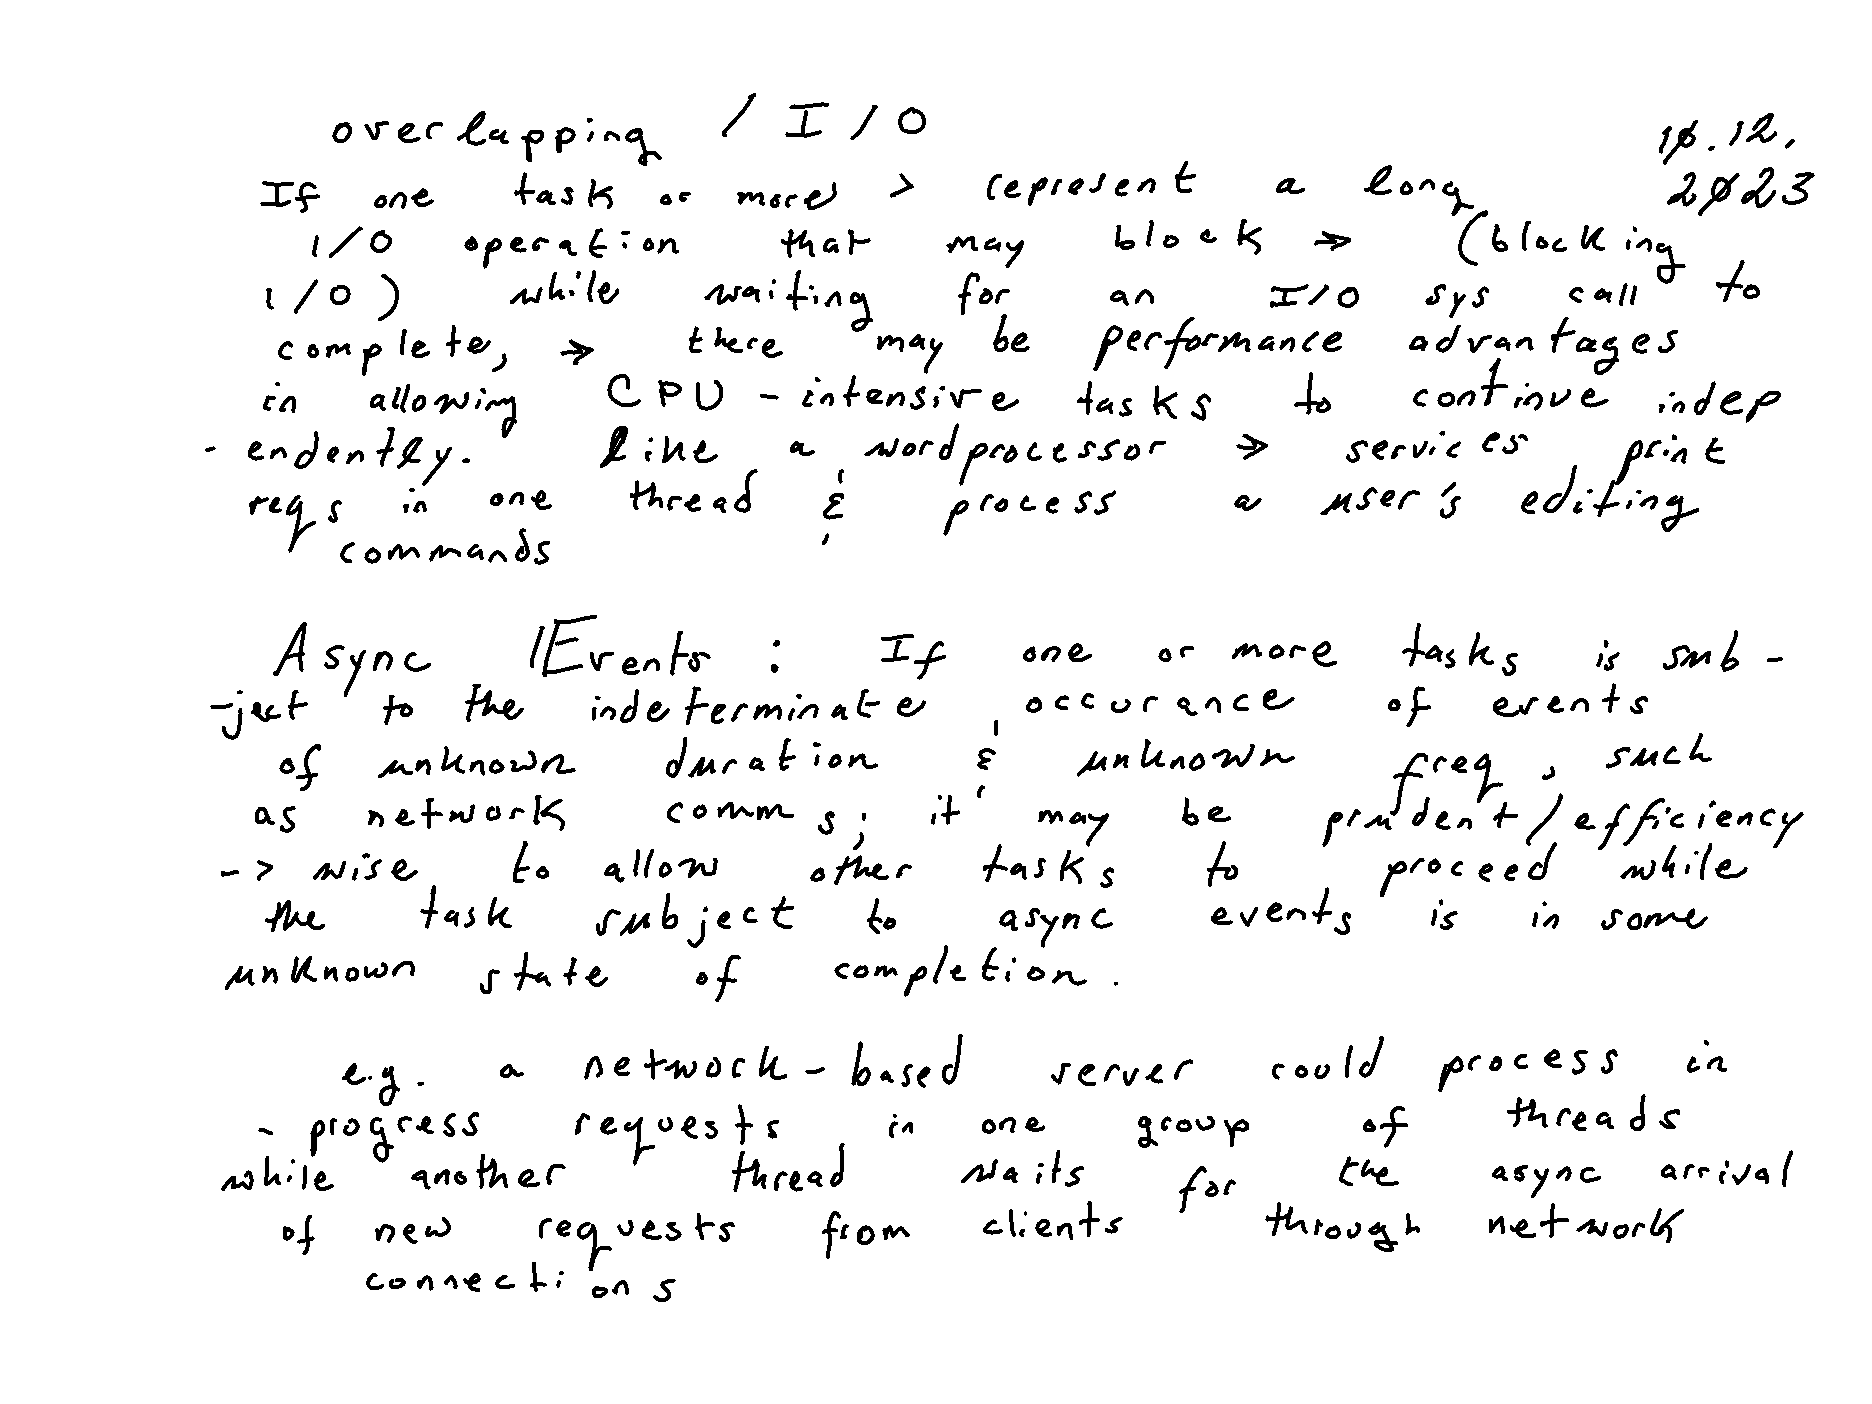 overlapping / I/O
10.12.
2023
If one task or more > represent a long
I/O operation that may block => (blocking
I/O) while waiting for an I/O sys call to
complete, => there may be performance advantages
in allowing CPU - intensive tasks to continue indep
- endently. like a wordprocessor => services print
reqs in one thread & process a user's editing
commands
Async /Events : If one or more tasks is sub -
-ject to the indeterminate occurance of events
of unknown duration & unknown freq, such
as network comms; it may be prudent/efficiency
-> wise to allow other tasks to proceed while
the task subject to async events is in some
unknown state of completion.
e.g. a network-based server could process in
- progress requests in one group of threads
while another thread waits for the async arrival
of new requests from clients through network
connections